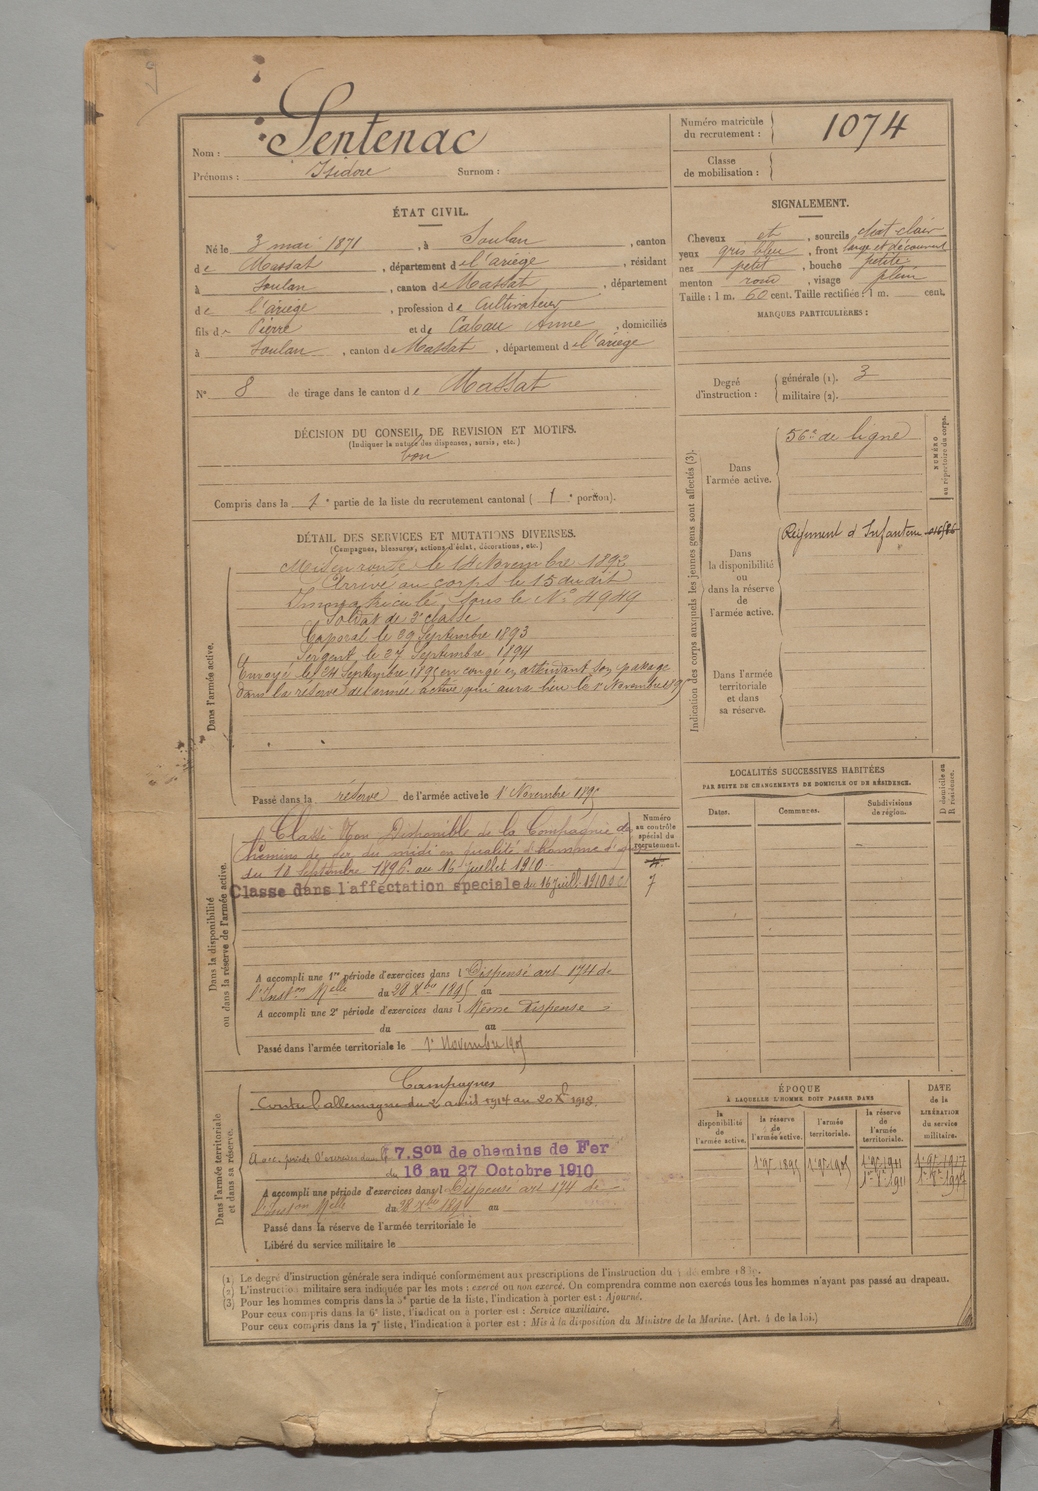 Nom : Sentenac
Prénoms : Isidore Surnom :
Numéro matricule du recrutement : 1074
Classe de mobilisation :
ÉTAT CIVIL.
Né le 3 mai 1871, à Soulan, canton
de Massat, département de l'ariège, résidant
à Soulan, canton de Massat, département
de l'ariège, profession de Cultivateur
fils de Pierre et de Cabau Anne, domiciliés
à Soulan, canton de Massat, département de l'ariège
N° 8 de tirage dans le canton de Massat
SIGNALEMENT.
Cheveux et, sourcils chat clair
yeux gris bleu, front large et découvert
nez petit, bouche petite
menton rond, visage plein
Taille : 1 m. 60 cent. Taille rectifiée : 1 m. cent.
MARQUES PARTICULIÈRES :
Degré d'instruction : générale (1). 3
militaire (2).
DÉCISION DU CONSEIL DE REVISION ET MOTIFS.
(Indiquer la nature des dispenses, sursis, etc.)
bon
Compris dans la 1e partie de la liste du recrutement cantonal (1e portion).
DÉTAIL DES SERVICES ET MUTATIONS DIVERSES.
(Campagnes, blessures, actions d'éclat, décorations, etc.)
Dans l'armée active.
Mis en route le 14 Novembre 1892
Arrivé au corps le 15 du dit
Immatriculé sous le N° 4949
Soldat de 2e classe
Caporal le 29 Septembre 1893
Sergent le 27 Septembre 1894
Envoyé le 24 Septembre 1895 en congé en attendant son passage
dans la réserve de l'armée active qui aura lieu le 1r Novembre 1895
Passé dans la réserve de l'armée active le 1r Novembre 1895
Indication des corps auxquels les jeunes gens sont affectés (3).
NUMÉRO au répertoire du corps.
Dans l'armée active.
56e de ligne
Dans la disponibilité ou dans la réserve de l'armée active.
Régiment d'Infanterie
Dans l'armée territoriale et dans sa réserve.
LOCALITÉS SUCCESSIVES HABITÉES
PAR SUITE DE CHANGEMENTS DE DOMICILE OU DE RÉSIDENCE.
Dates. Communes. Subdivisions de région. D domicile ou R résidence.
Dans la disponibilité ou dans la réserve de l'armée active.
Numéro au contrôle spécial de recrutement.
Classé Non Disponible de la Compagnie des
Chemins de fer du midi en qualité d'homme d'équipe
du 10 Septembre 1896 au 16 Juillet 1910
Classé dans l'affectation spéciale du 16 juillt 1910
7
A accompli une 1re période d'exercices dans l Dispensé art 174 de
l'Inston Melle du 28 Xbre 1895 au
A accompli une 2e période d'exercices dans l Même Dispense
du au
Passé dans l'armée territoriale le 1r Novembre 1905
Dans l'armée territoriale et dans sa réserve.
Campagnes
Contre l'allemagne du 2 août 1914 au 20 Xbre 1918
A acc. période d'exercices dans la 7. Son de chemins de Fer
du 16 au 27 Octobre 1910
A accompli une période d'exercices dans l Dispensé art 174 de
l'Inston Melle du 28 Xbre 1895 au
Passé dans la réserve de l'armée territoriale le
Libéré du service militaire le
ÉPOQUE
À LAQUELLE L'HOMME DOIT PASSER DANS
la disponibilité de l'armée active.
la réserve de l'armée active.
l'armée territoriale.
la réserve de l'armée territoriale.
DATE de la LIBÉRATION du service militaire.
(1) Le degré d'instruction générale sera indiqué conformément aux prescriptions de l'instruction du décembre
(2) L'instruction militaire sera indiquée par les mots : exercé ou non exercé. On comprendra comme non exercés tous les hommes n'ayant pas passé au drapeau.
(3) Pour les hommes compris dans la 5e partie de la liste, l'indication à porter est : Ajourné.
Pour ceux compris dans la 6e liste, l'indication à porter est : Service auxiliaire.
Pour ceux compris dans la 7e liste, l'indication à porter est : Mis à la disposition du Ministre de la Marine. (Art. 4 de la loi.)